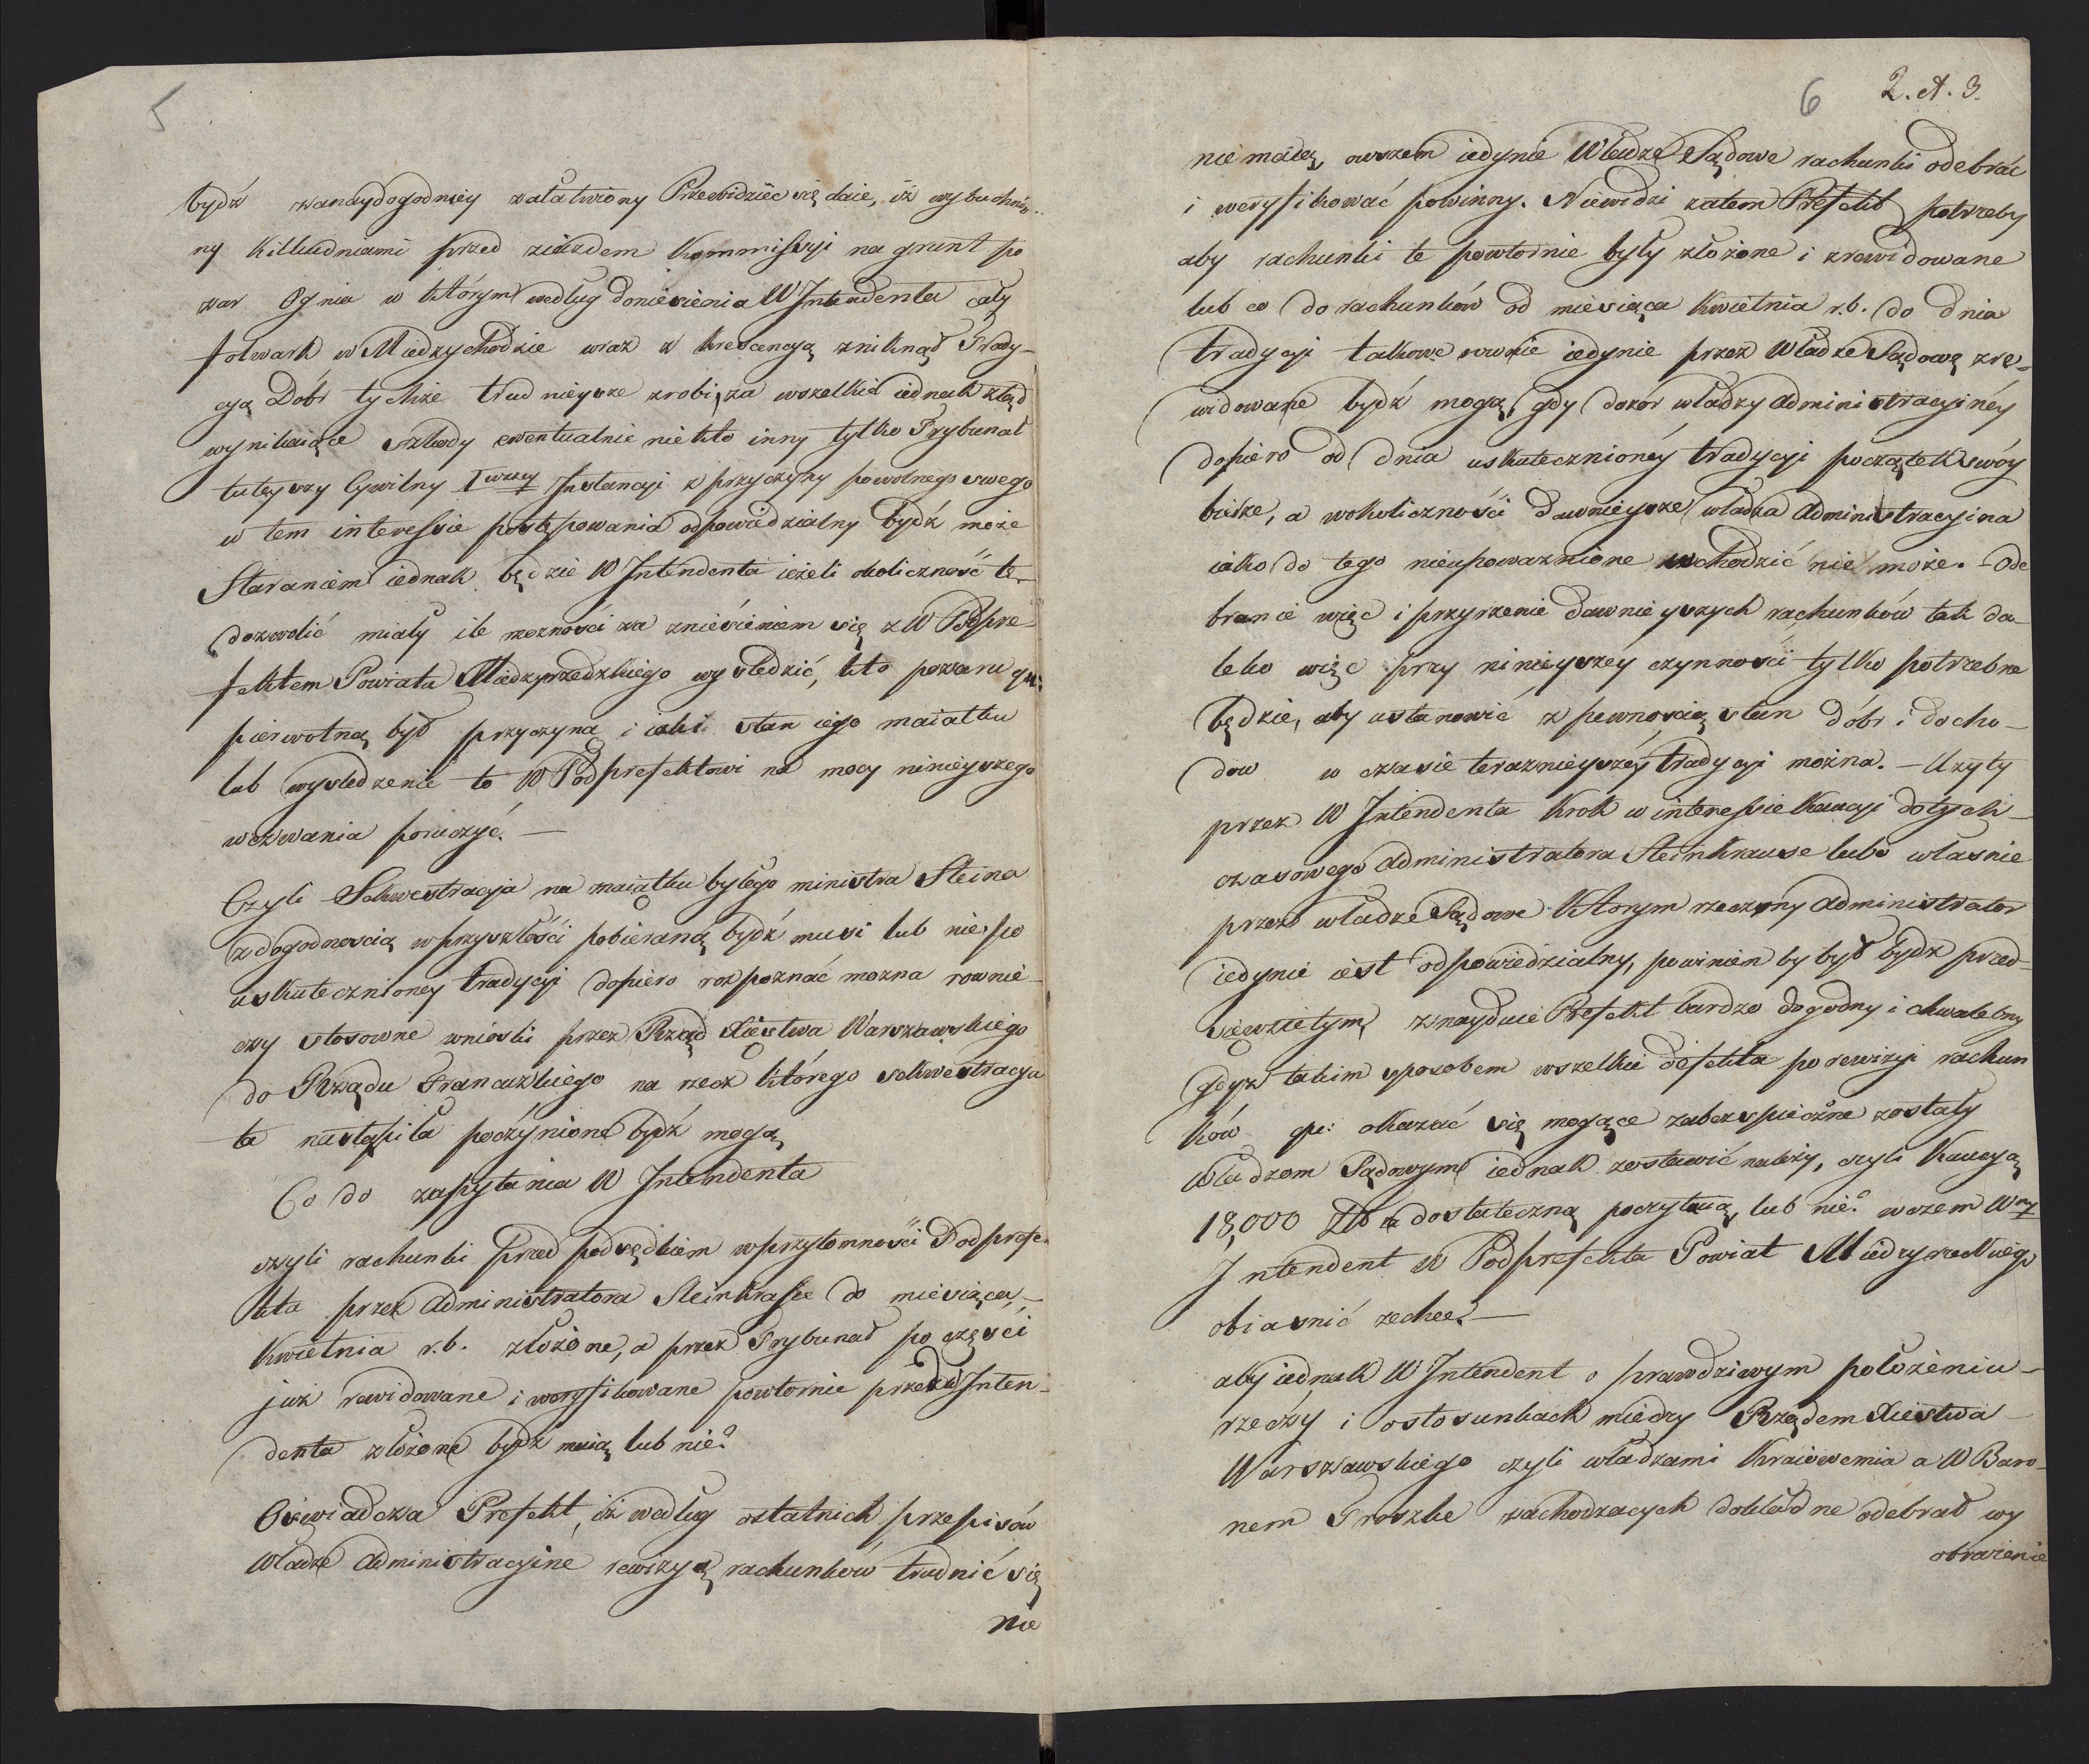 5
bydź naydogodniey załatwiony Przewidzieć się daie, iż wybuchnio-
ny kilkudniami przed ziazdem Kommissyi na grunt po
żar Ognia w którym według doniesienia W Intendenta cały
folwark w Miedzychodzie wraz z krescencyą zniknął Trady-
cyą Dóbr tychże trudnieysze zrobi, za wszelkie iednak ztąd
wynikaiące szkody ewentualnie nie kto inny tylko Trybunał
tuteyszy Cywilny Iwszey Instancyi z przyczyny powolnego swego
w tem interessie postępowania odpowiedzialny bydź może
Staraniem iednak będzie W Intendenta ieżeli okoliczność te
dozwolić miały ile mozności za zniesieniem się z W Podpre-
fektem Powiatu Miedzyrzedzkiego wysledzić, kto pożaru qu:
pierwotną był przyczyną i iaki stan iego maiątku
lub wysledzenie to W Podprefektowi na mocy ninieyszego
wezwania poruczyć. —
Czyli Sekwestracyja na maiątku byłego ministra Steina
z dogodnoscią w przyszłości pobieraną bydź musi lub nie, po
uskutecznioney tradycyi dopiero rozpoznać mozna rownie
czy stosowne wnioski przez Rząd Xięstwa Warszawskiego
do Rządu Francuzkiego na rzecz którego sekwestracya
ta nastąpiła poczynione bydź mogą
Co do zapytania W Intendenta
czyli rachunki przed podsędkiem w przytomności Podprefe-
kta przez Administratora Steinkrause do miesiąca, —
Kwietnia r.b. złożone, a przez Trybunał po części
już rewidowane i weryfikowane powtornie przed W Inten-
denta złożone bydź maią lub nie?
Oświadcza Prefekt, iż według ostatnich przepisów
Władze Administracyine rewizyą rachunków trudnić się
nie
6 2. A. 3.
nie maią, owszem iedynie Władze Sądowe rachunki odebrać
i weryfikować powinny. Niewidzi zatem Prefekt potrzeby
aby rachunki te powtornie były złożone i zrewidowane
lub co do rachunków od miesiąca Kwietnia r.b. do dnia
tradycyi takowe rownie iedynie przez Władze Sądową zre-
widowane bydź mogą, gdy dozór władzy Administracyinéy
dopiero od dnia uskutecznionéy tradycyi początek swóy
bierze, a w okoliczności dawnieysze władza Administracyina
iako do tego nieupoważnione wchodzić nie może. — Ode
branie więc i przyrzenie dawnieyszych rachunków tak da-
leko więc przy ninieyszéy czynności tylko potrzebne
będzie, aby ustanowić z pewnoscią stan dóbr i docho-
dow w czasie teraznieyszéy tradycyi można. — Uzyty
przez W Intendenta krok w interessie Kaucyi dotych-
czasowego Administratora Steinkrause lubo własnie
przez władze Sądowe którym rzeczony Administrator
iedynie iest odpowiedzialny, powinien by był bydz przed-
sięwziętym, znayduie Prefekt bardzo dogodny i chwalebny
gdyż takim sposobem wszelkie defekta po rewizyi rachun
ków qu: okazać się mogące zabezpieczone zostały
Władzom Sądowym iednak zostawić należy, czyli Kaucyą
18,000 Złt za dostateczną poczytaią, lub nie? w czem Wny
Intendent W Podprefekta Powiat Miedzyrzeckiego
obiasnić zechce. —
aby iednak W Intendent o prawdziwym położeniu —
rzeczy i o stosunkach między Rządem Xięstwa —
Warszawskiego czyli władzami Kraiowemia a W Baro-
nem Troszke zachodzacych dokładne odebrał wy
obrażenie